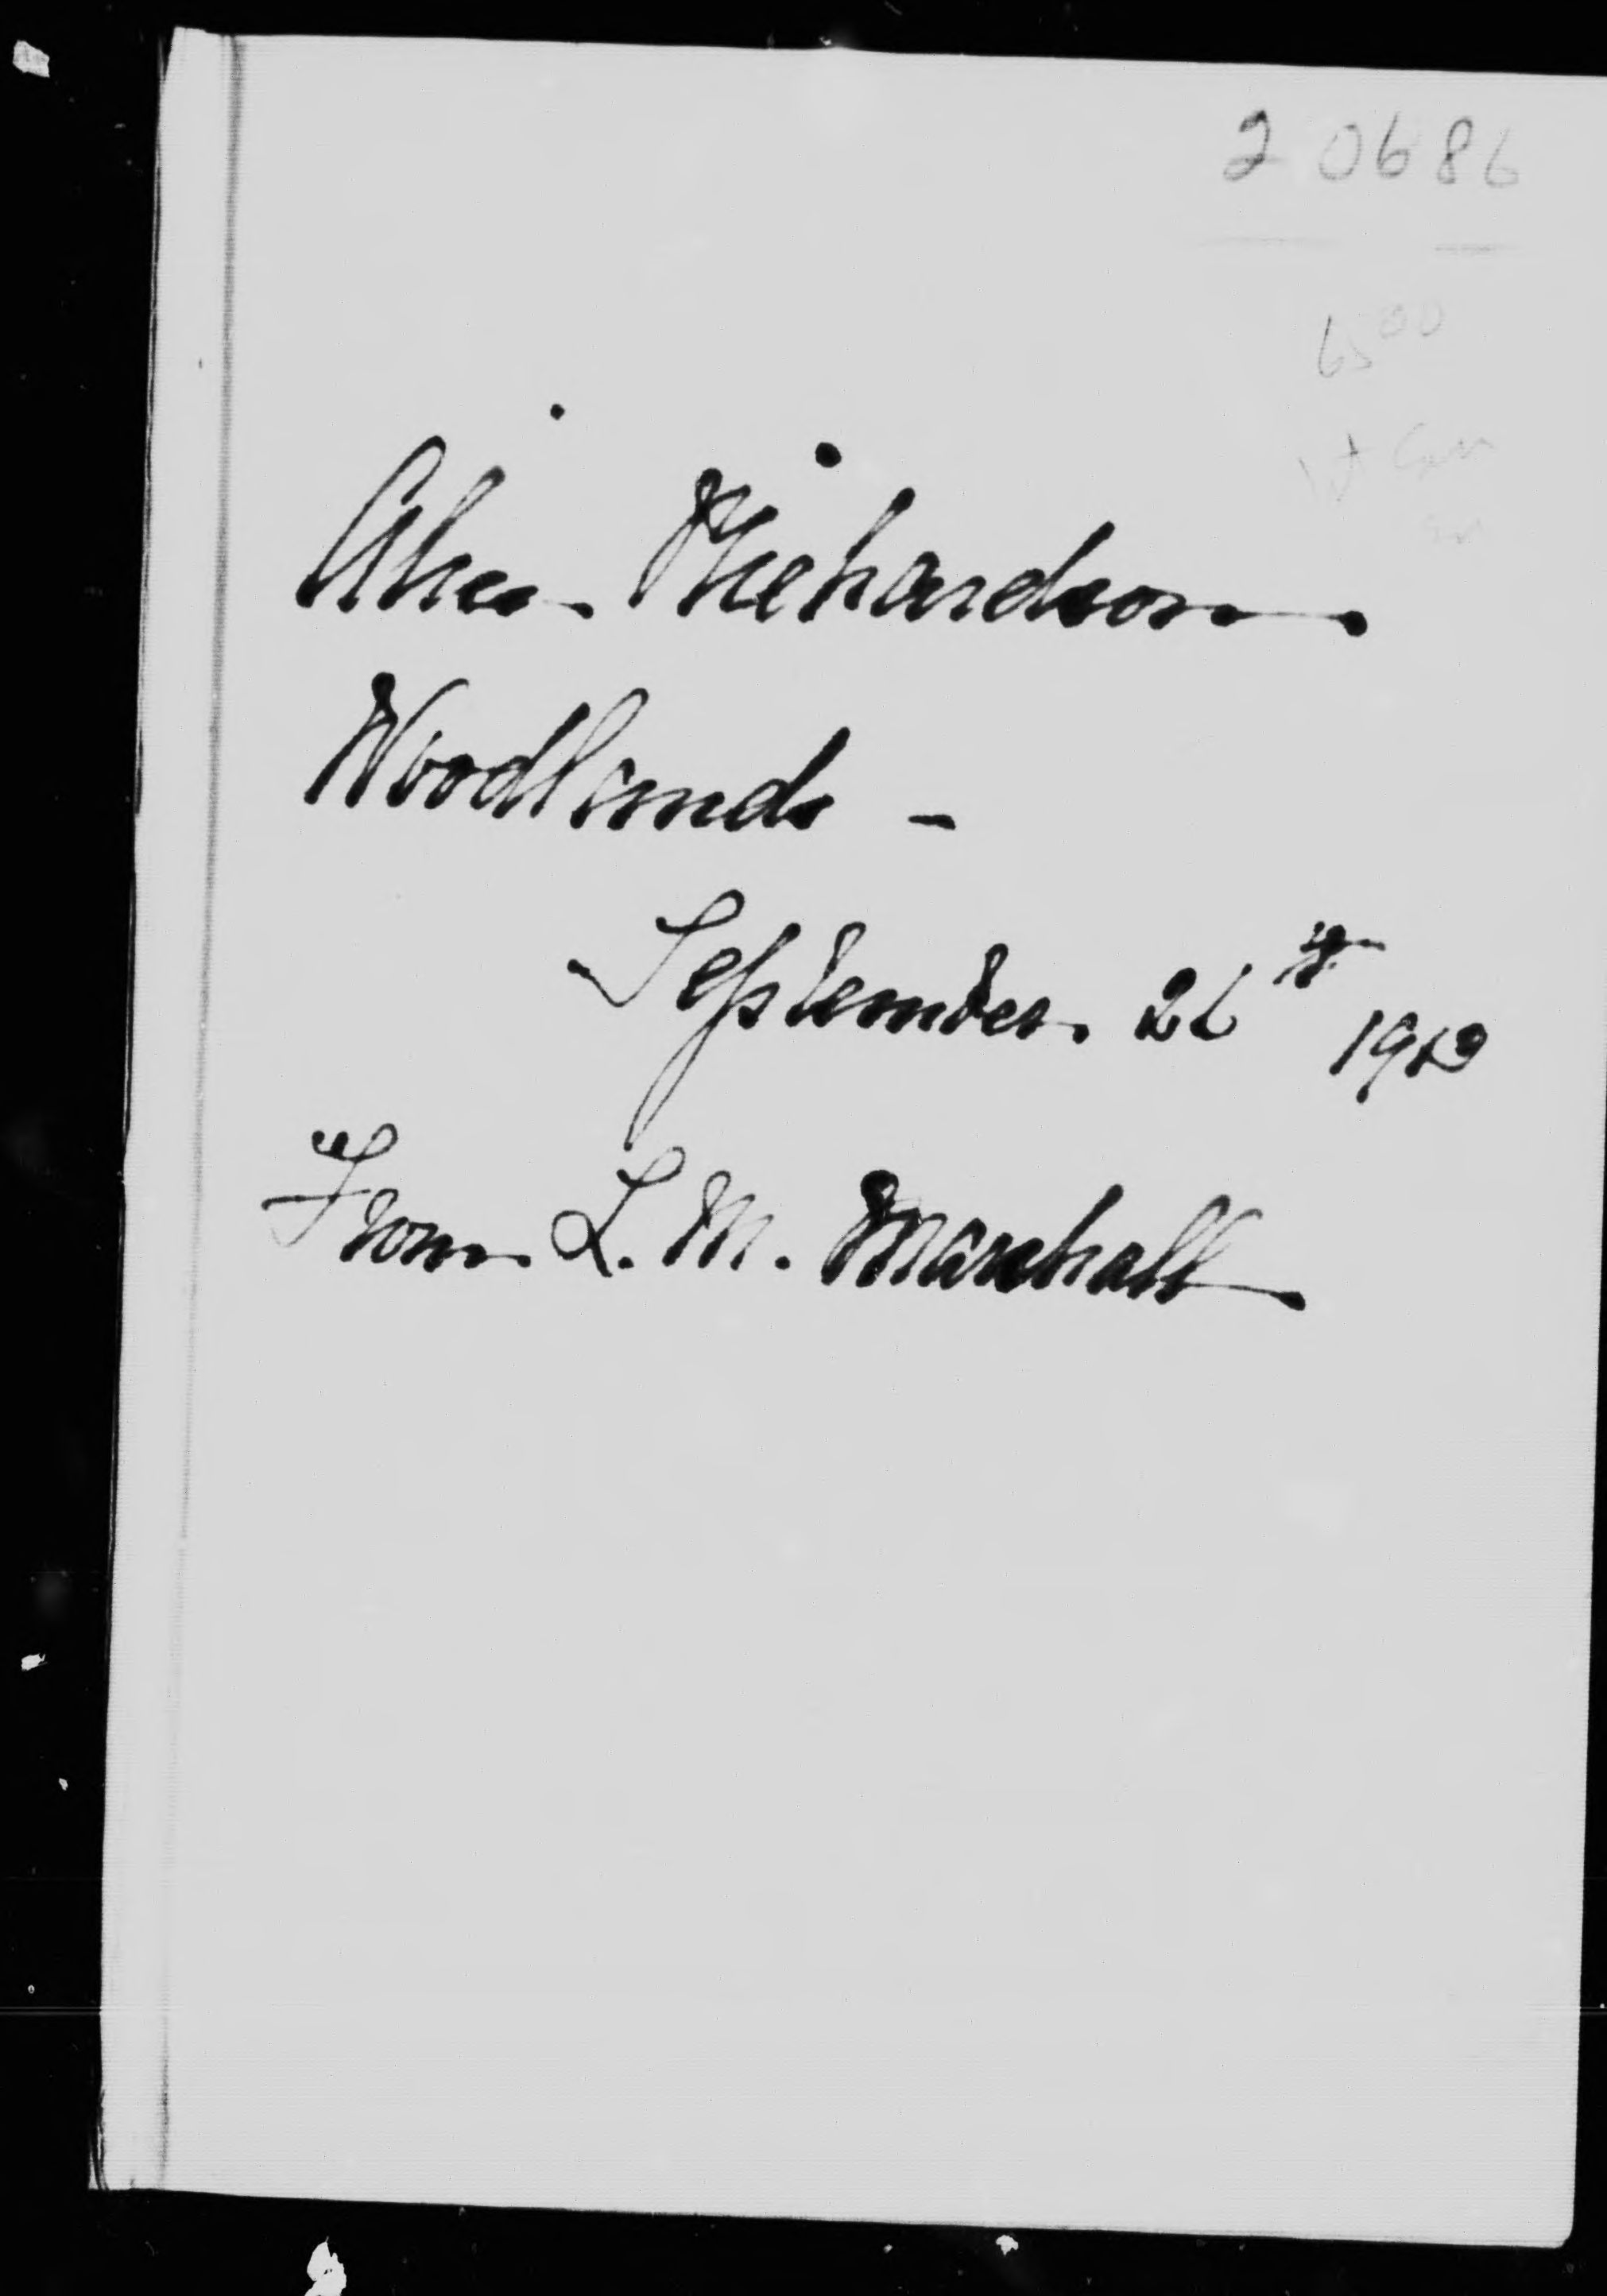 20686
6500
Alice Richardson
Woodlands -
September 26th 1912
From L. M. Marshall